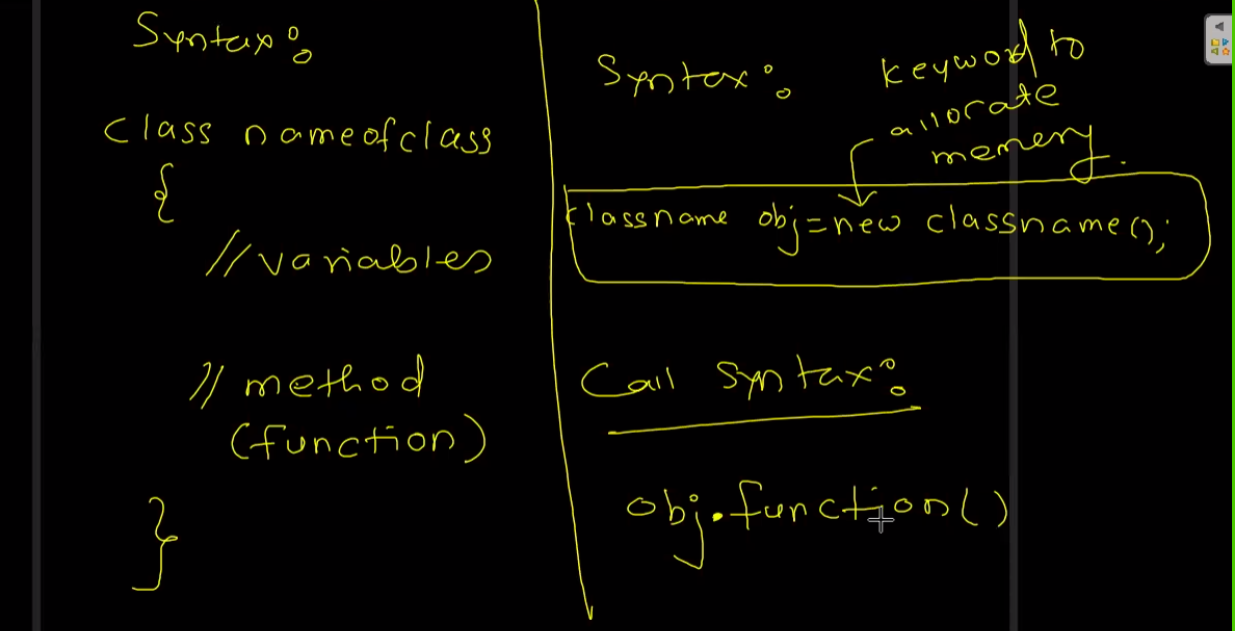 Syntax:
class nameofclass
{
//variables
// method
(function)
}
Syntax:
keyword to
allorate
memery.
classname obj=new classname();
Call Syntax:
obj.function()